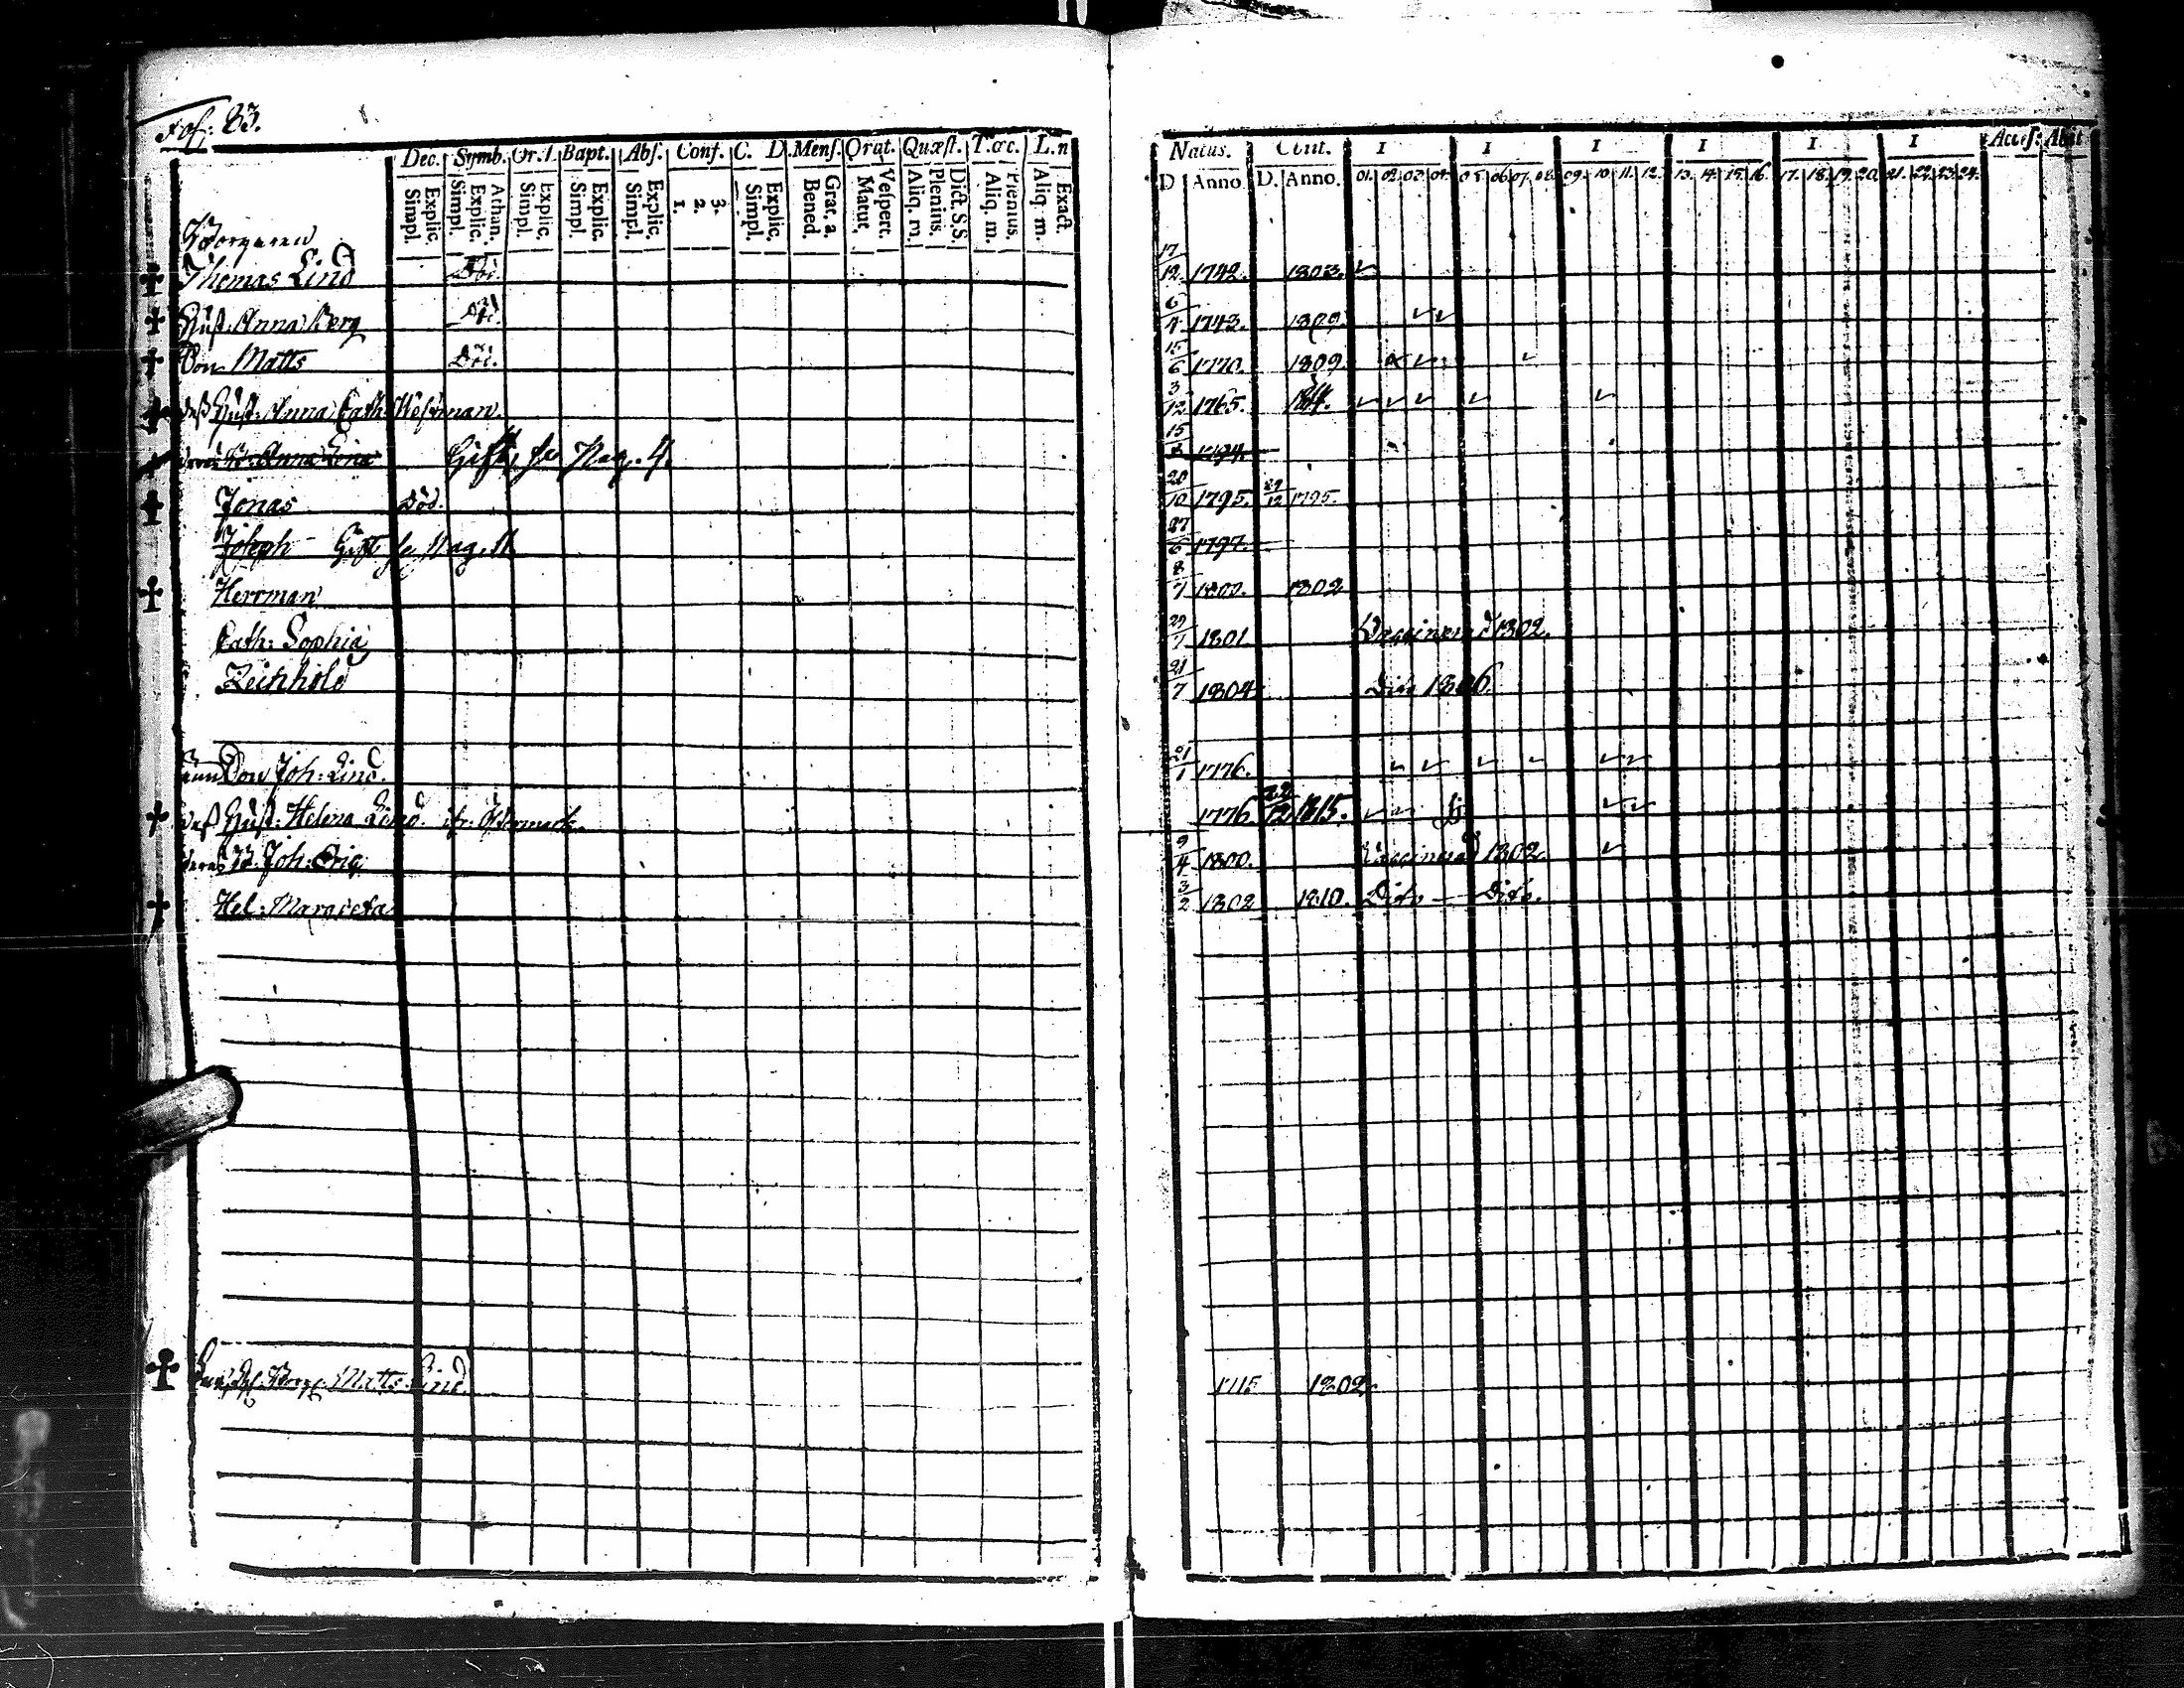 Fol: 83.
Dec. Symb. Or. Bapt. Abs. Conf. C. D. Mens. Orat. Quæst. T. œc. L. n
Explic. Simpl. Athan. Explic. Simpl. Explic. Simpl. Explic. Simpl. Explic. Simpl. 3. 2. 1. Explic. Simpl. Grat. a. Bened. Vespert. Matut. Dict. S.S. Plenius. Aliq. m. Plenius. Aliq. m. Exact. Aliq. m.
Natus. Obiit. I I I I I I Acces: Abiit
D Anno D. Anno. 01. 02. 03. 04. 05. 06. 07. 08. 09. 10. 11. 12. 13. 14. 15. 16. 17. 18. 19. 20. 21. 22. 23. 24.
Borgaren
Thomas Lind Död. 17/12 1742. 1803.
Hust. Anna Berg 6/4 1743. 1809.
Son Matts Död. 15/6 1770. 1809.
dess Hust: Anna Cath: Westman 3/12 1765.
Anna Lina Gift, se Pag. 4. 15/8 1794.
Jonas Död. 20/10 1795. 29/12 1795.
Joseph Gift se Pag. 11 27/6 1797.
Herrman 8/7 1800. 1802
Cath: Sophia 29/7 1801. Vaccinerad 1802.
Reinhold 21/7 1804 Dito 1806.
Son Joh: Lind. 21/1 1776.
dess Hust: Helena Lind. ifr: Östermark. 1776. 22/12 1815.
deras B. Joh: Eric 9/4 1800. Vaccinerad 1802.
Hel: Margreta 3/2 1802 1810. Dito — Dito.
Matts Lind. 1715 1802